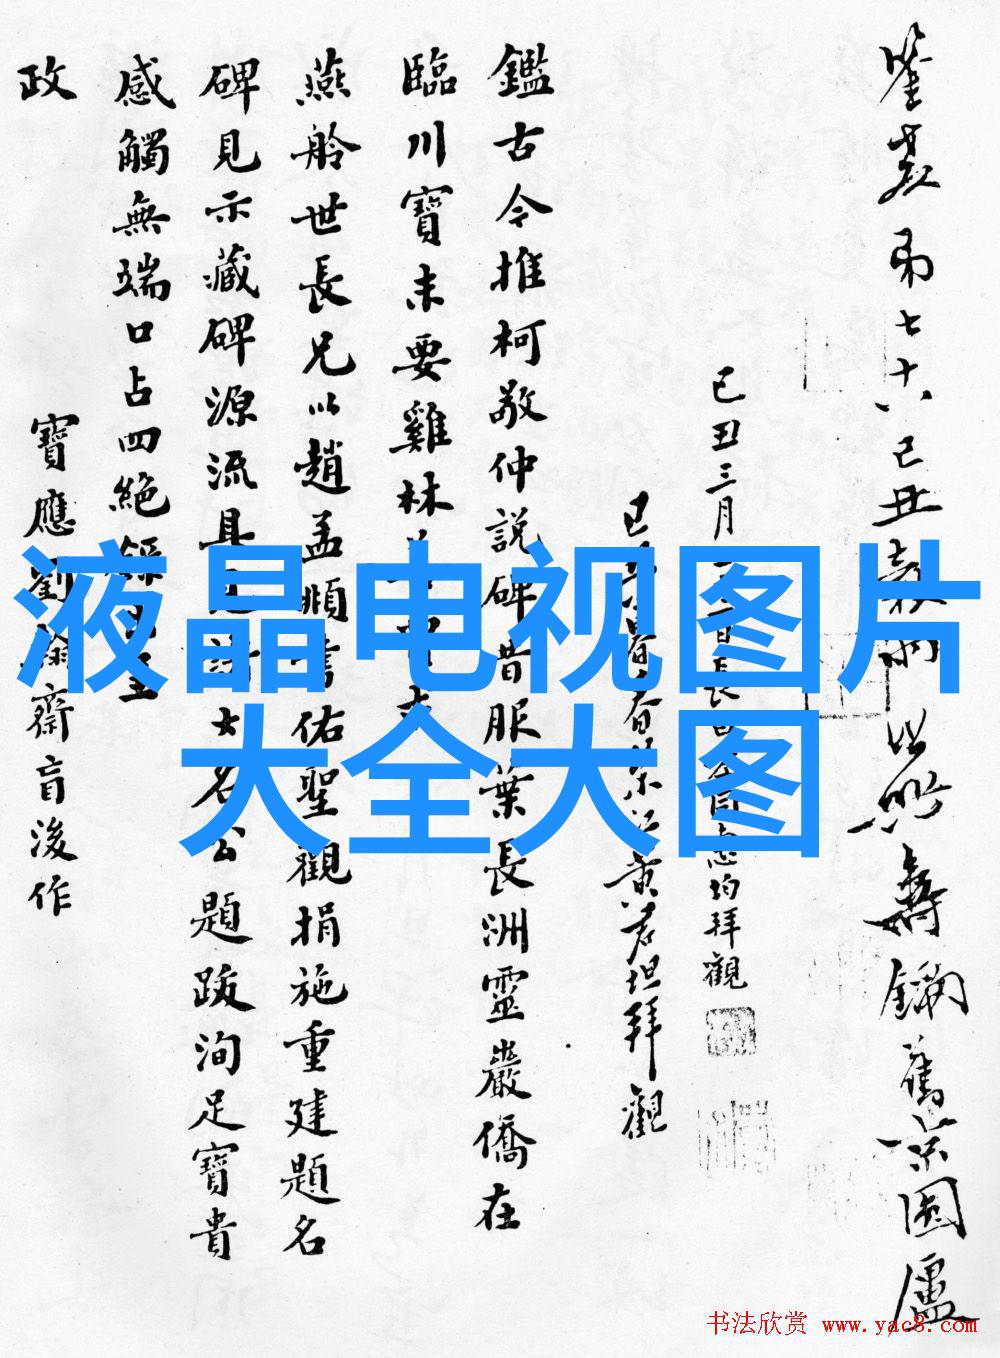 鑒家弟七十八己丑
壽鏞舊京園廬
己丑三月
均拜觀
黃君坦拜觀
鑑古今推柯敬仲説碑昔服葉長洲靈巖僑在
臨川寶未要雞林
燕舲世長兄以趙孟頫書佑聖觀捐施重建題名
碑見示藏碑源流具
大名公題跋洵足寶貴
感觸無端口占四絕
政
寶應劉
齋盲後作
液晶电视图片
大全大图
书法欣赏 www.yac8.com